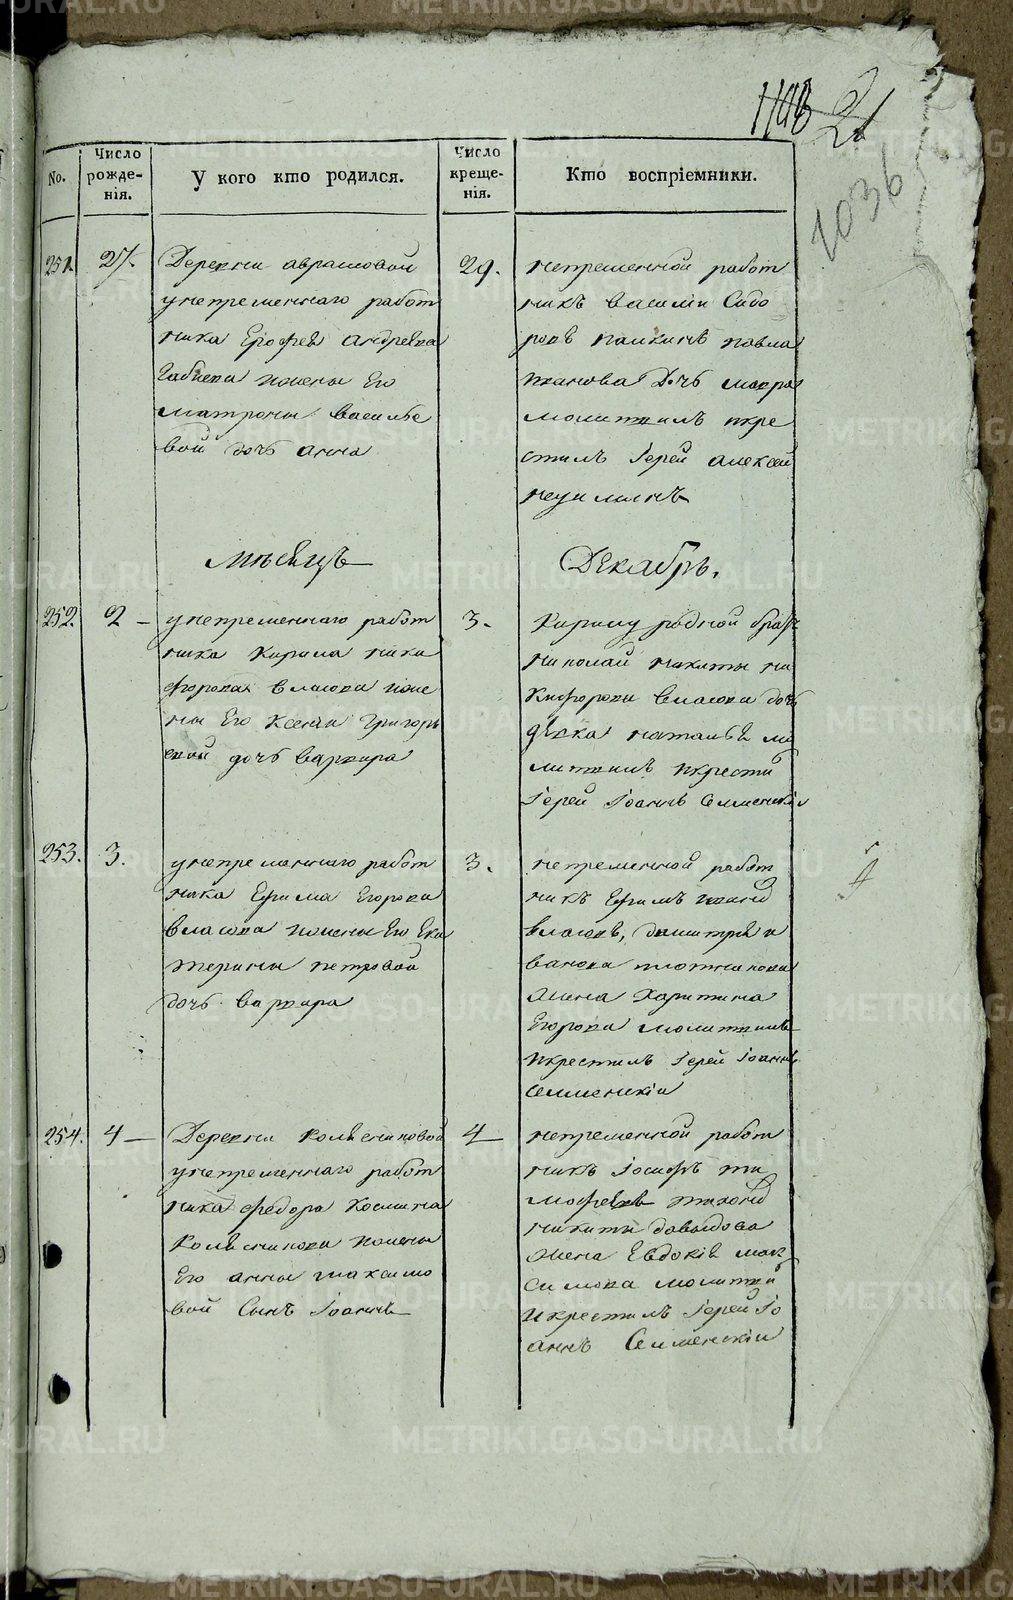 No.
Число рожде-нія.
У кого кто родился.
Число креще-нія.
Кто воспріемники.
1036
251.
27.
Деревни аврамовой
унепременнаго работ
ника Ерофея андреева
жены Его
матроны василье
вой дочь анна
29.
непременной работ
никъ василіи Сидо
ровъ павла
дочь мавра
молитвилъ икре
стилъ Іерей алексей
Мѣсяцъ
Декабрь.
252.
2 —
унепременнаго работ
ника Кирила ники
форова власова жене
ны Его Ксеніи григорь
евой дочь варвара
3.
Кирилу родной братъ
николай никиты ни
кифорова власова дочь
дѣвка наталья мо
литвилъ икрести
Іерей Іоаннъ Селменскіи
253.
3.
унепременнаго работ
ника Ефима Егорова
власова жены Его Ека
терины петровой
дочь варвара
3.
непременной работ
никъ Ефимъ
власовъ, димитрея и
ванова плотникова
жена Харитина
Егорова молитвилъ
икрестилъ Іерей Іоаннъ
Селменскіи
254.
4 —
Деревни колясниковой
унепременнаго работ
ника федора Космина
Колясникова жены
Его анны максимо
вой Сынъ Іоаннъ
4
непременной работ
никъ Іосифъ ти
мофеевъ
никиты давыдова
жена Евдокія мак
симова молитви
икрестилъ Іерей Іо
аннъ Селменскіи
METRIKI.GASO-URAL.RU